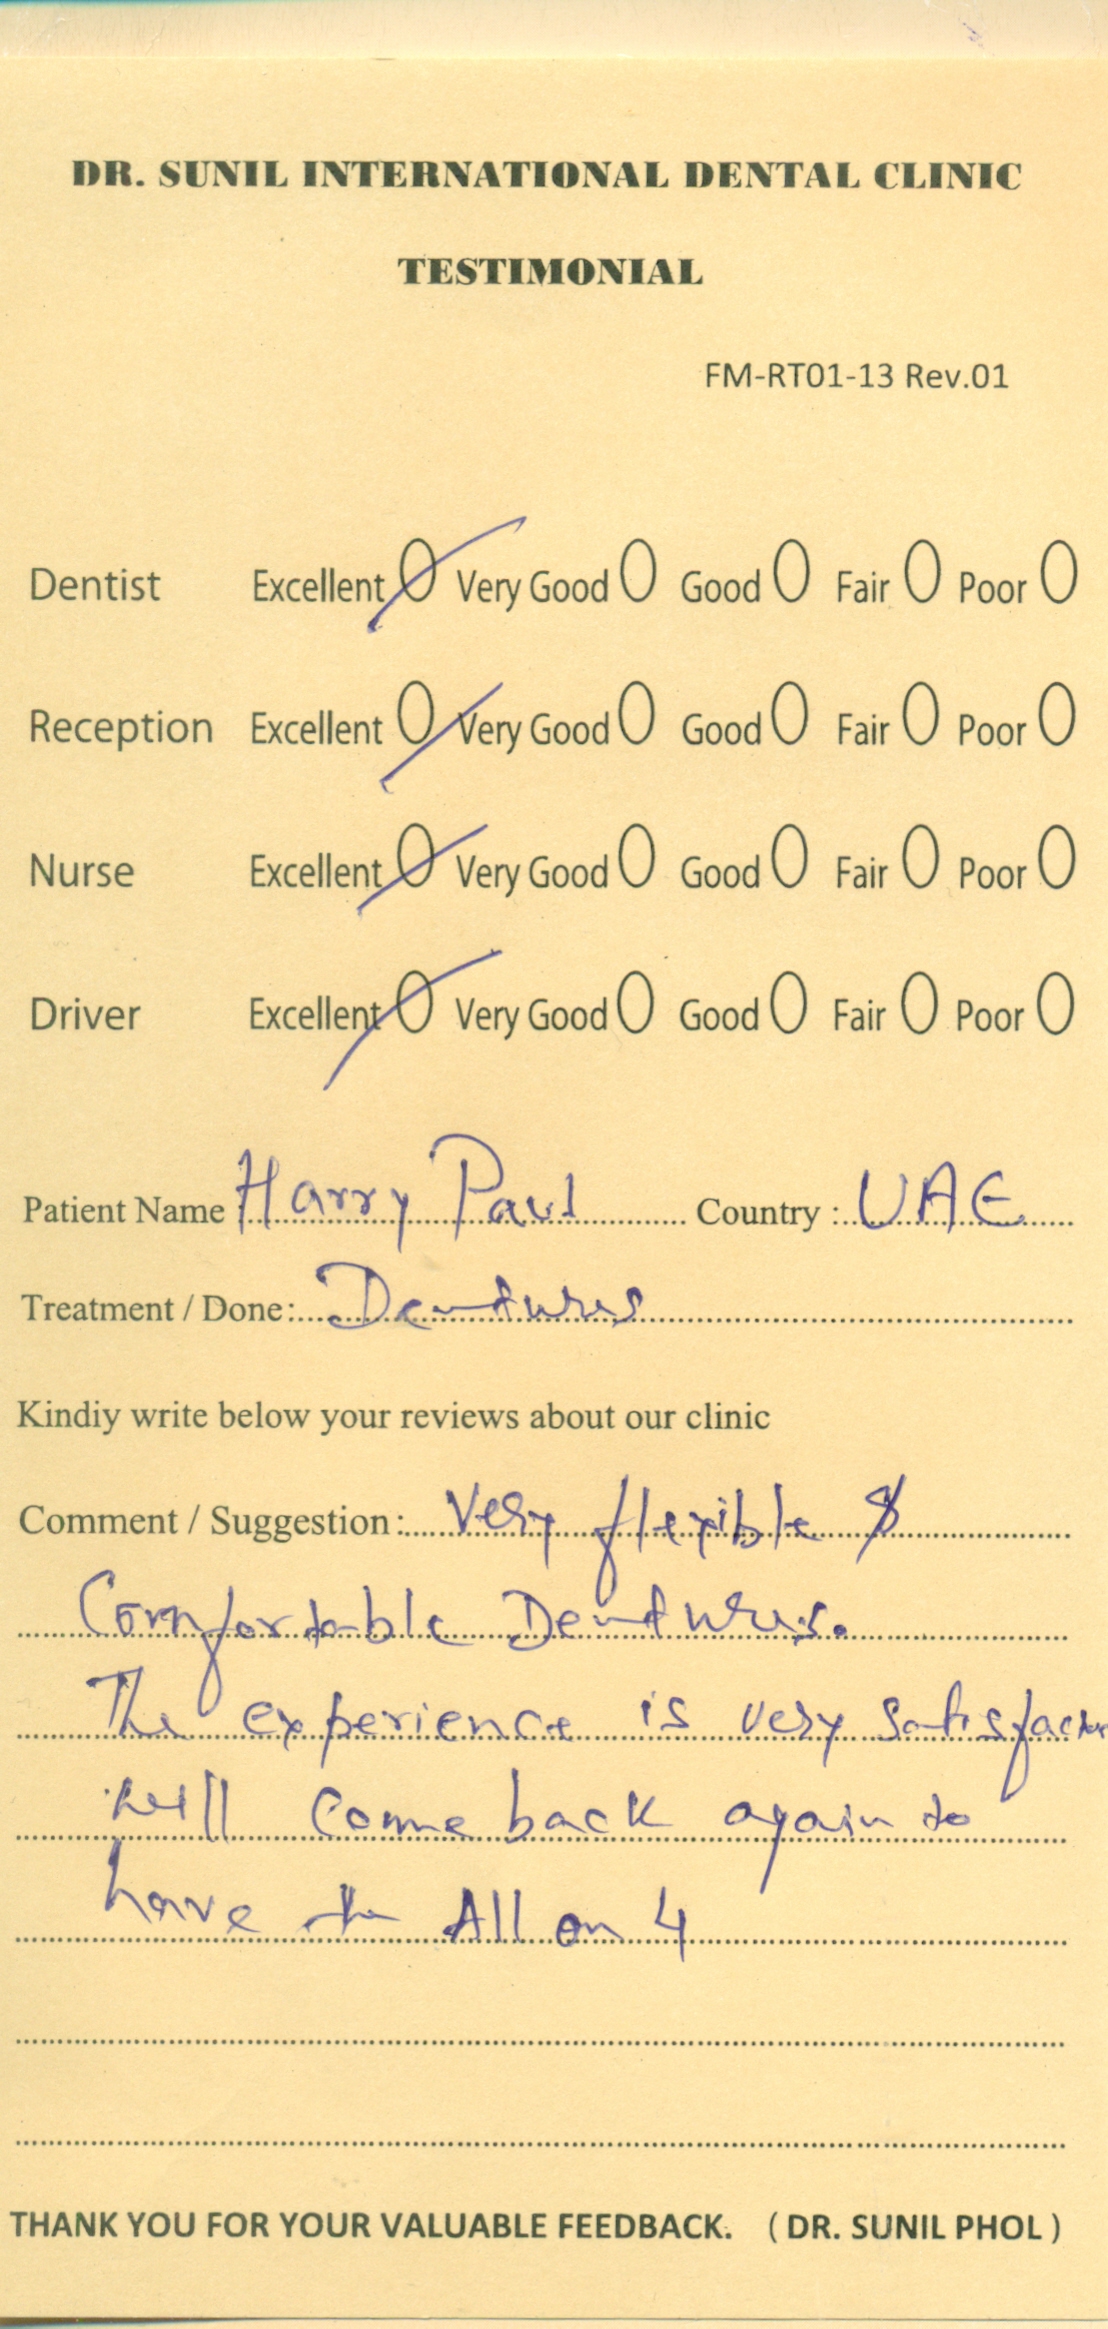 DR. SUNIL INTERNATIONAL DENTAL CLINIC
TESTIMONIAL
FM-RT01-13 Rev.01
Dentist Excellent Very Good Good Fair Poor
Reception Excellent Very Good Good Fair Poor
Nurse Excellent Very Good Good Fair Poor
Driver Excellent Very Good Good Fair Poor
Patient Name Harry Paul Country : UAE
Treatment / Done: Dentures
Kindiy write below your reviews about our clinic
Comment / Suggestion: Very flexible &
Comfortable Dentures.
The experience is very
will come back again to
have the All on 4
THANK YOU FOR YOUR VALUABLE FEEDBACK. ( DR. SUNIL PHOL )